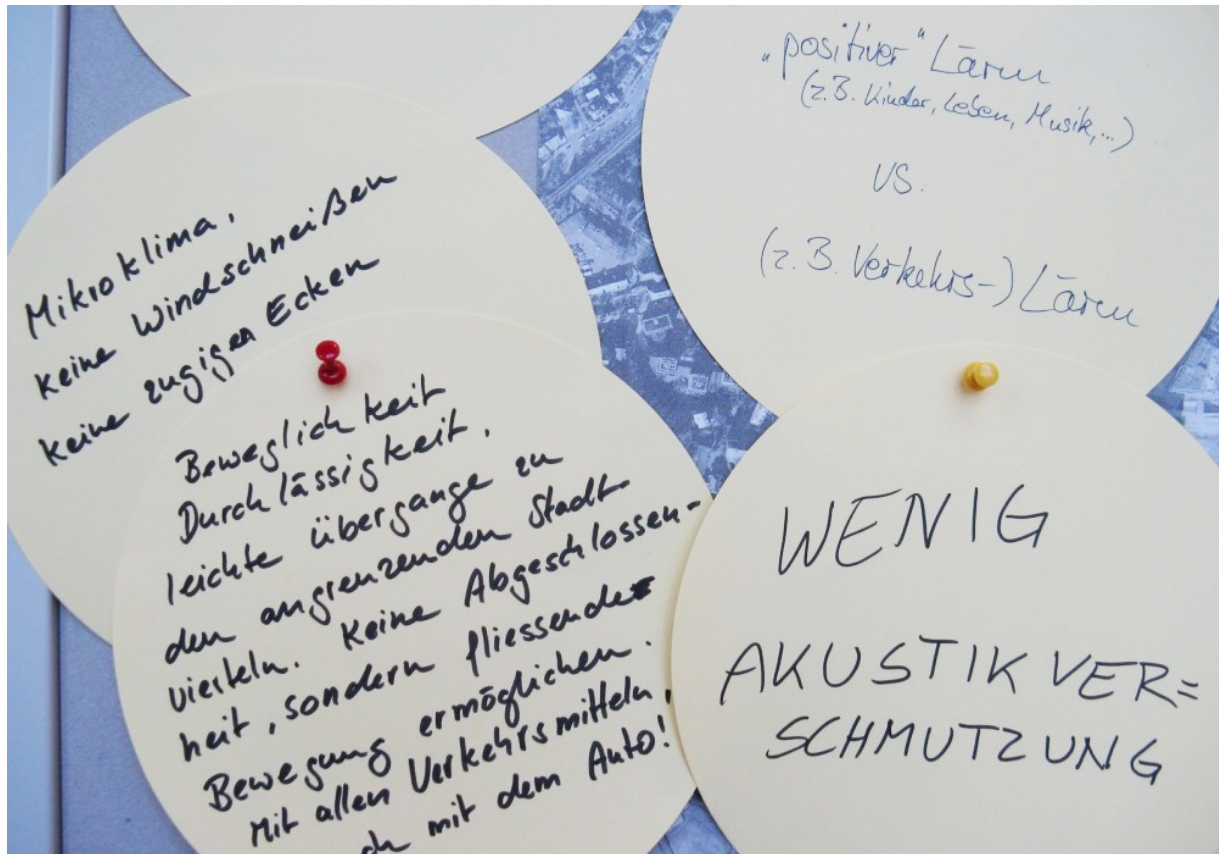 Mikroklima.
keine Windschneißen
keine zugigen Ecken
Beweglichkeit
Durchlässigkeit.
leichte übergange zu
den angrenzenden Stadt-
vierteln. Keine Abgeschlossen-
heit, sondern fliessende
Bewegung ermöglichen.
Mit allen Verkehrsmitteln,
mit dem Auto!
„positiver" Lärm
(z.B. Kinder, Leben, Musik,...)
VS.
(z.B. Verkehrs-) Lärm
WENIG
AKUSTIKVER=
SCHMUTZUNG